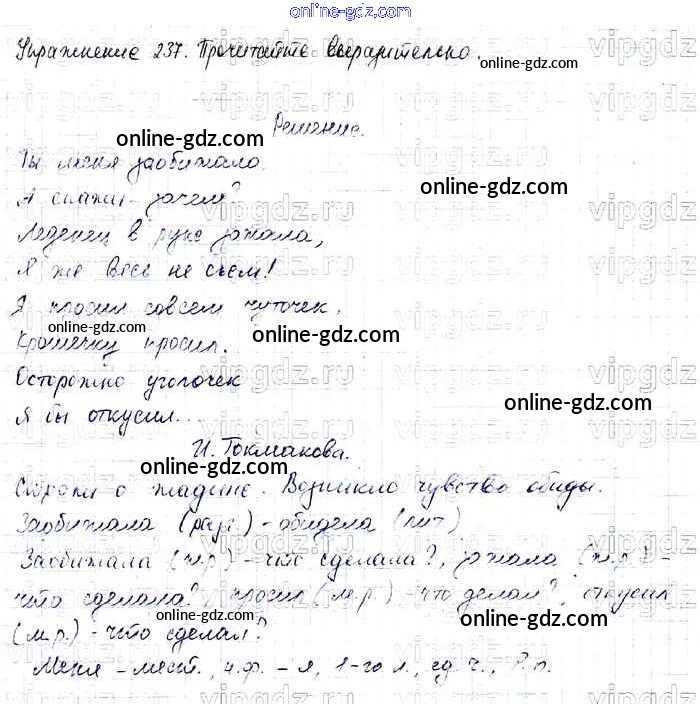 online-gdz.com
Упражнение 237. Прочитайте выразительно.
online-gdz.com
Решение.
online-gdz.com
Ты меня заобижала.
А скажи - зачем?
online-gdz.com
Леденец в руке зажала,
Я же весь не съем!
Я просил совсем чуточек,
online-gdz.com
online-gdz.com
Крошечку просил.
Осторожно уголочек
online-gdz.com
Я бы откусил...
И. Токмакова.
online-gdz.com
Строки о жадине. Возникло чувство обиды.
Заобижала (разг.) - обидела (лит)
online-gdz.com
Заобижала (ж.р.) - что сделала?, зажала (ж.р.) -
что сделала?, просил (м.р.) - что делал?, откусил
online-gdz.com
(м.р.) - что сделал?
Меня - мест., н.ф. - я, 1-го л., ед.ч., Р.п.
online-gdz.com
vipgdz.ru